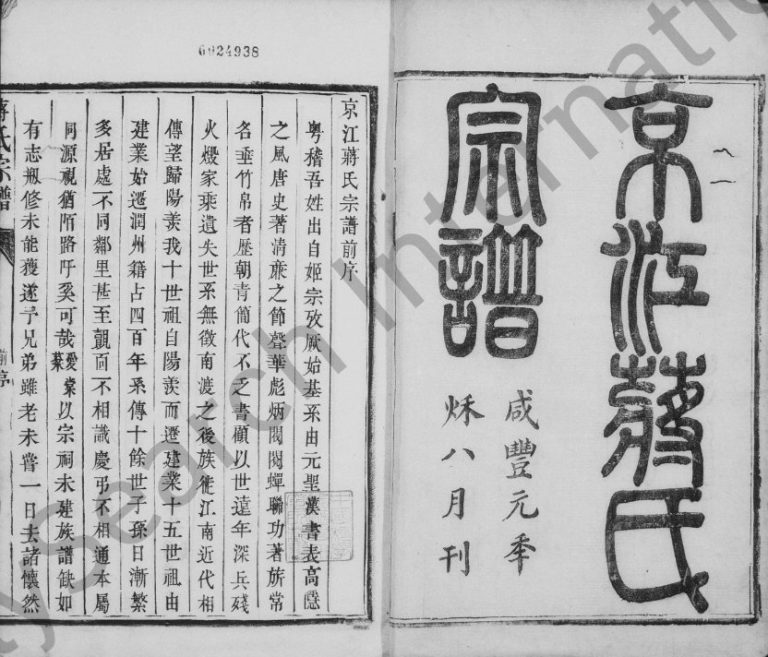 京江蔣氏
宗譜
咸豐元年
秌八月刊
6924938
京江蔣氏宗譜前序
粵稽吾姓出自姬宗攷厥始基系由元聖漢書表高隱
之風唐史著淸廉之節聲華彪炳閥閱蟬聯功著旂常
名垂竹帛者歷朝靑簡代不乏書顧以世遠年深兵殘
火燬家乘遺失世系無徵南渡之後族徙江南近代相
傳望歸陽羨我十世祖自陽羨而遷建業十五世祖由
建業始遷潤州籍占四百年系傳十餘世子孫日漸繁
多居處不同鄰里甚至覿面不相識慶弔不相通本屬
同源視猶陌路吁奚可哉愛棠慕棻以宗祠未建族譜缺如
有志搬修未能獲遂予兄弟雖老未嘗一日去諸懷然
蔣氏宗譜
前序
FamilySearch International